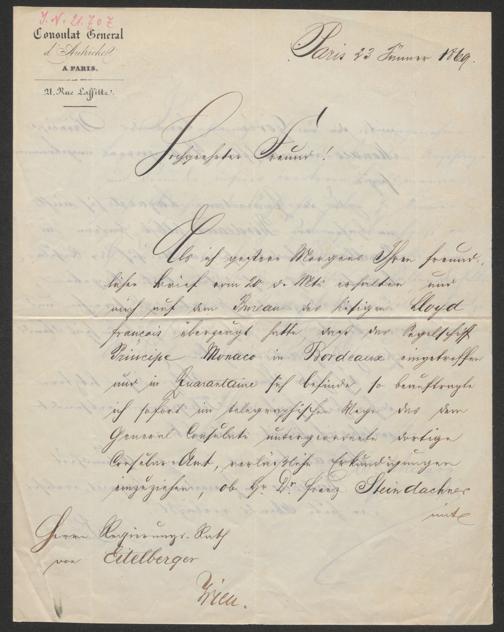 I.N. 21.707
Consulat Général
d'Autriche
A PARIS.
21. Rue Laffitte.
Paris 23 Jänner 1869.
Hochgeehrter Freund!
Als ich gestern Morgens Ihren freund-
lichen Brief vom 20. d. Mts. erhalten und
mich auf dem Bureau des hiesigen Lloyd
français überzeugt hatte daß das Segelschiff
Principe Monaco in Bordeaux eingetroffen
und in Quarantaine sich befinde, so beauftragte
ich sofort im telegraphischen Wege das dem
General Consulate untergeordnete dortige
Consular-Amt, verläßliche Erkundigungen
einzuziehen, ob Hr Dr Franz Steindachner
mit
Herrn Regierungs-Rath
von Eitelberger
Wien.